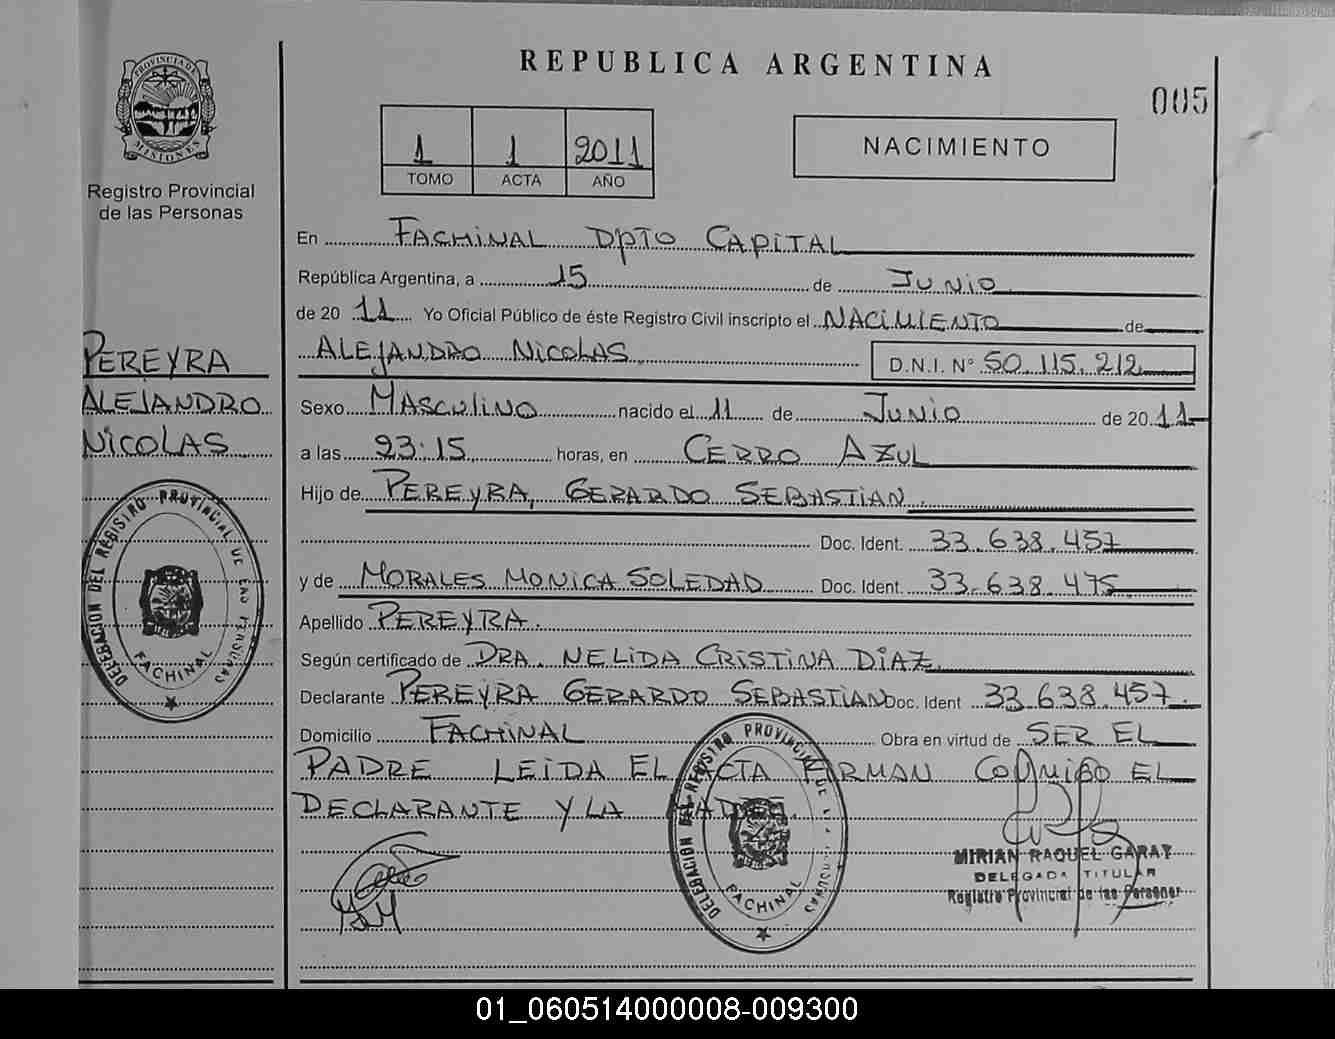 REPUBLICA ARGENTINA
005
PROVINCIA DE MISIONES
Registro Provincial
de las Personas
1 1 2011
TOMO ACTA AÑO
NACIMIENTO
En FACHINAL DPTO CAPITAL
República Argentina, a 15 de JUNIO
de 20 11 Yo Oficial Público de éste Registro Civil inscripto el NACIMIENTO de
PEREYRA
ALEJANDRO
NICOLAS
ALEJANDRO NICOLAS D.N.I. N° 50.115.212
Sexo MASCULINO nacido el 11 de JUNIO de 20 11
a las 23:15 horas, en CERRO AZUL
Hijo de PEREYRA, GERARDO SEBASTIAN.
Doc. Ident. 33.638.457
y de MORALES MONICA SOLEDAD Doc. Ident. 33.638.475
Apellido PEREYRA.
Según certificado de DRA. NELIDA CRISTINA DIAZ
Declarante PEREYRA GERARDO SEBASTIAN Doc. Ident 33.638.457.
Domicilio FACHINAL Obra en virtud de SER EL
PADRE LEIDA EL ACTA FIRMAN CONMIGO EL
DECLARANTE Y LA MADRE.
DELEGACION DEL REGISTRO PROVINCIAL DE LAS PERSONAS
FACHINAL
DELEGACION DEL REGISTRO PROVINCIAL DE
FACHINAL
MIRIAN RAQUEL GARAY
DELEGADA TITULAR
Registro Provincial de las Personas
01_060514000008-009300